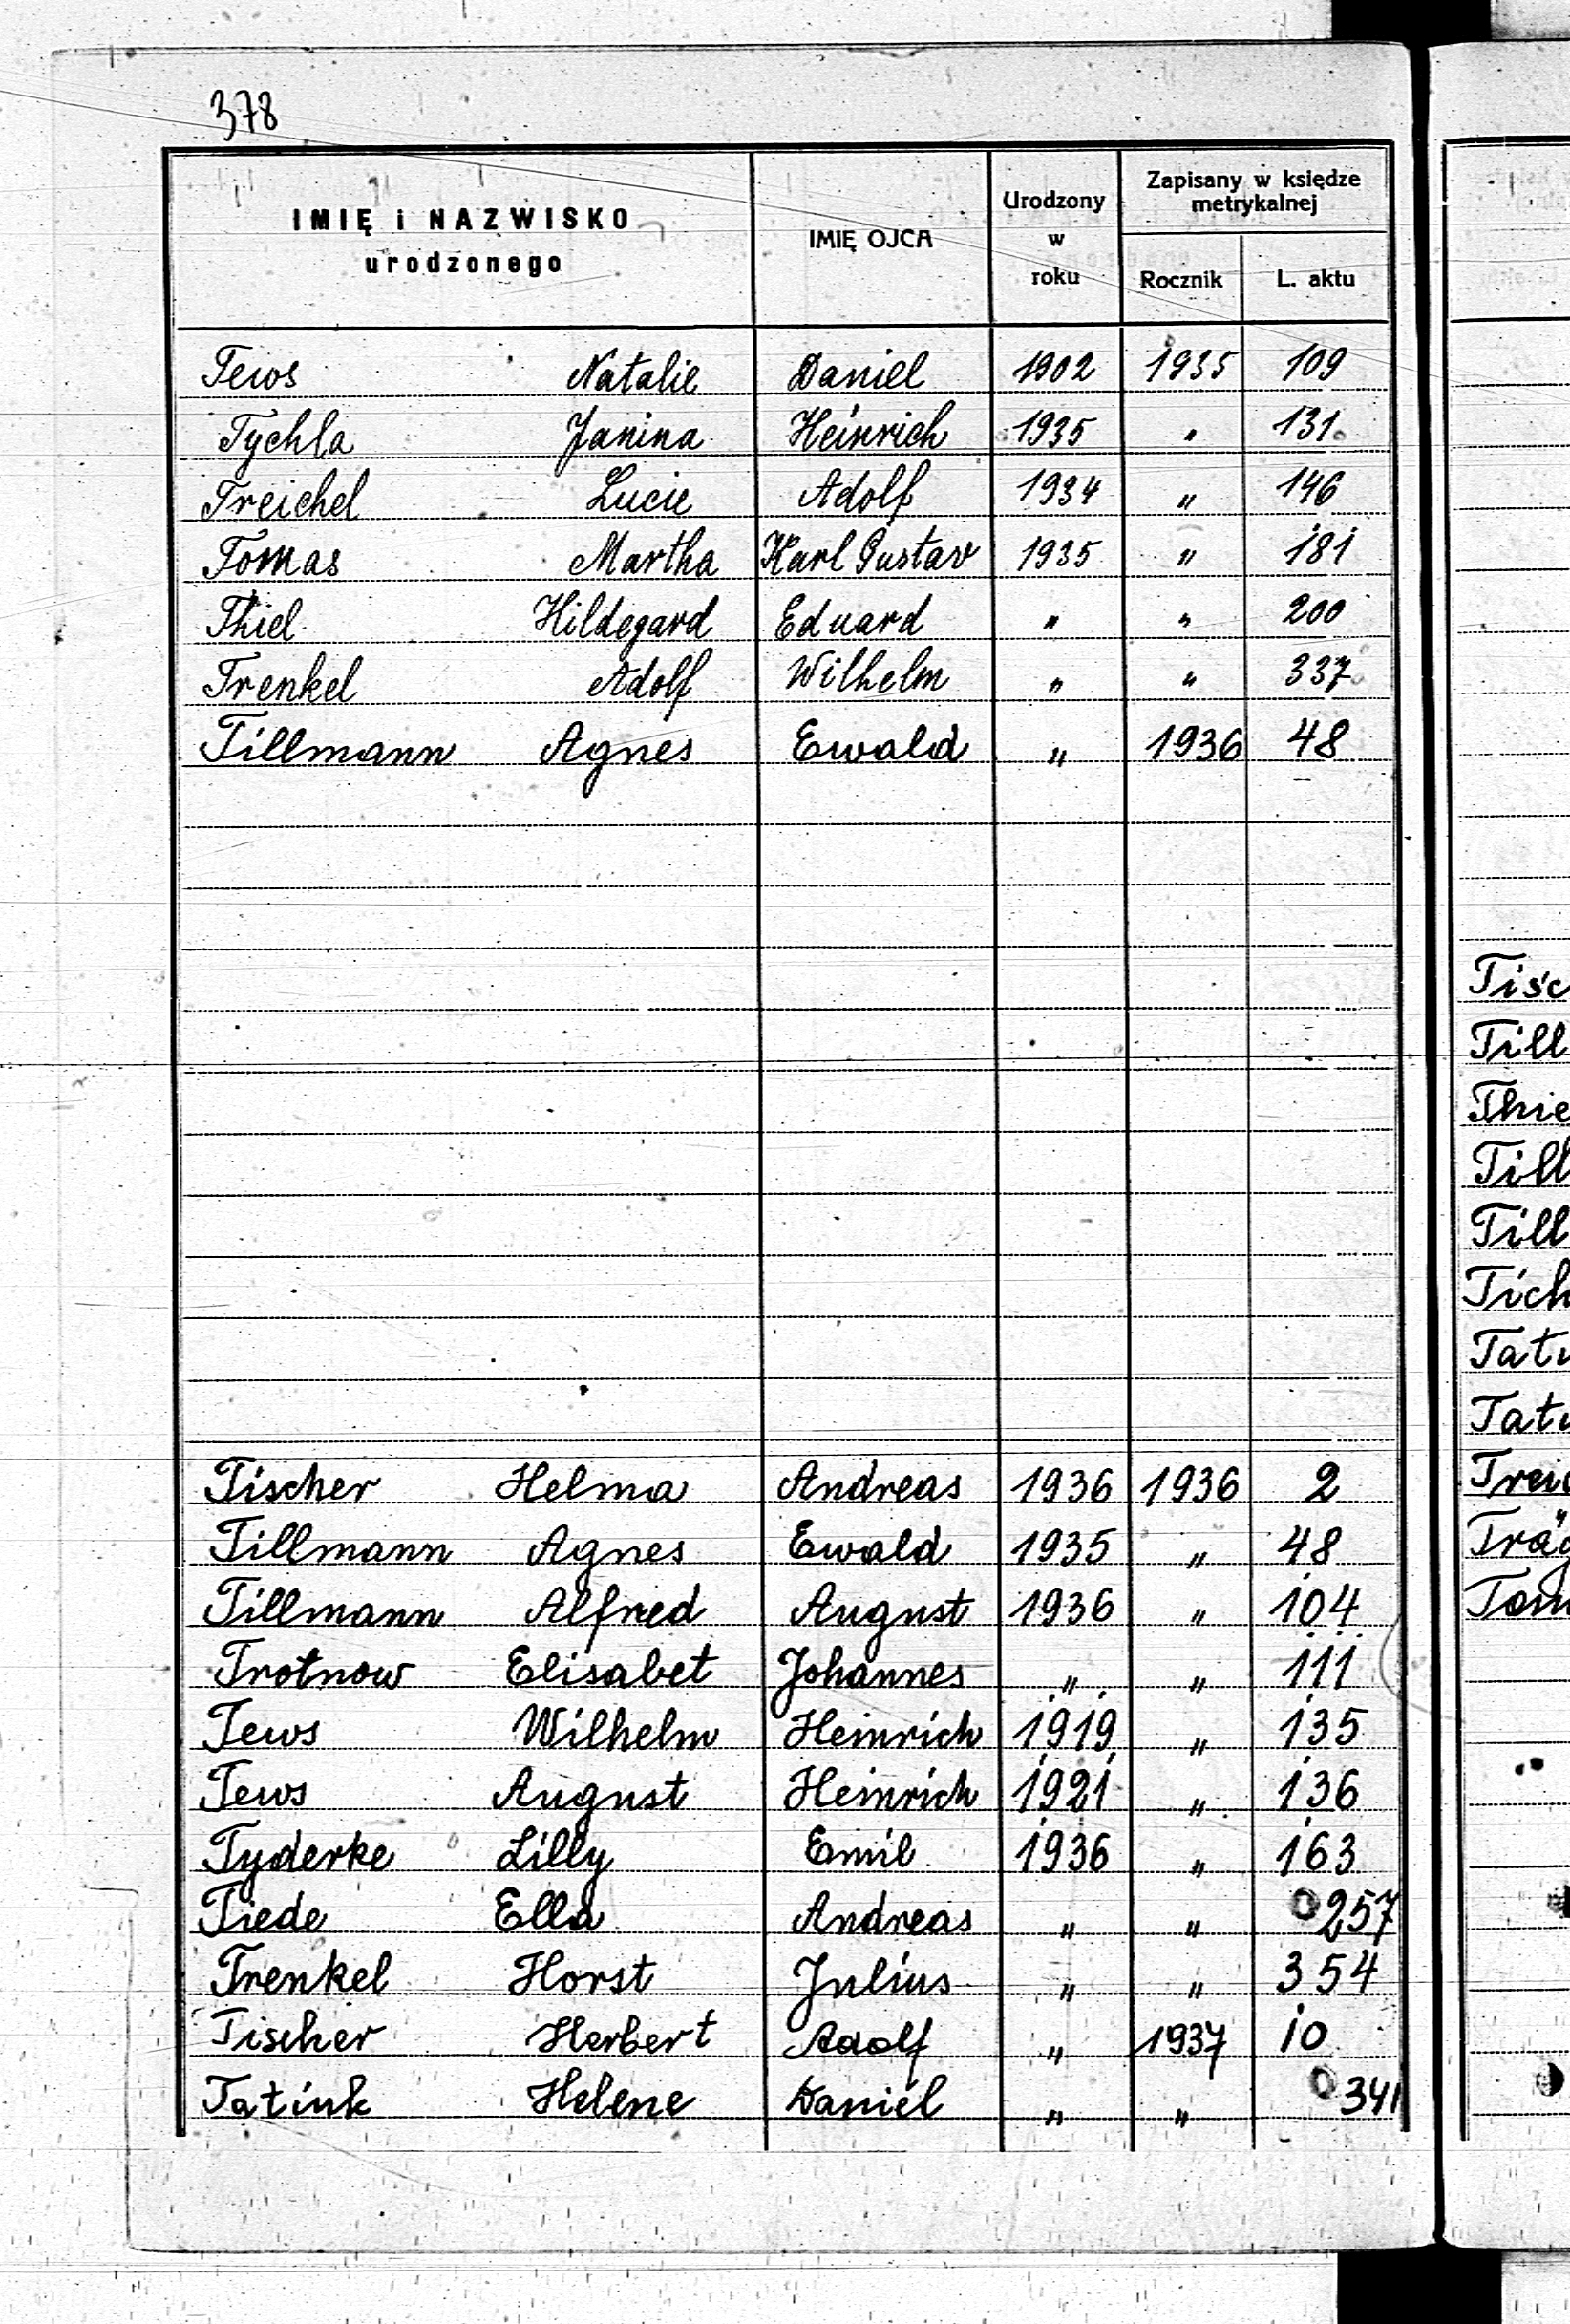 378
IMIĘ i NAZWISKO
urodzonego
IMIĘ OJCA
Urodzony
w
roku
Zapisany w księdze
metrykalnej
Rocznik L. aktu
Tews Natalie Daniel 1902 1935 109
Tychla Janina Heinrich 1935 " 131
Treichel Lucie Adolf 1934 " 146
Tomas Martha Karl Gustav 1935 " 181
Thiel Hildegard Eduard " " 200
Trenkel Adolf Wilhelm " " 337
Tillmann Agnes Ewald " 1936 48
Tischer Helma Andreas 1936 1936 2
Tillmann Agnes Ewald 1935 " 48
Tillmann Alfred August 1936 " 104
Trotnow Elisabet Johannes " " 111
Tews Wilhelm Heinrich 1919 " 135
Tews August Heinrich 1921 " 136
Tyderke Lilly Emil 1936 " 163
Tiede Ella Andreas " " 257
Trenkel Horst Julius " " 354
Tischer Herbert Adolf " 1937 10
Tatiuk Helene Daniel " " 341
Tisc
Till
Thie
Till
Till
Tich
Tatu
Tatu
Treic
Träg
Tom